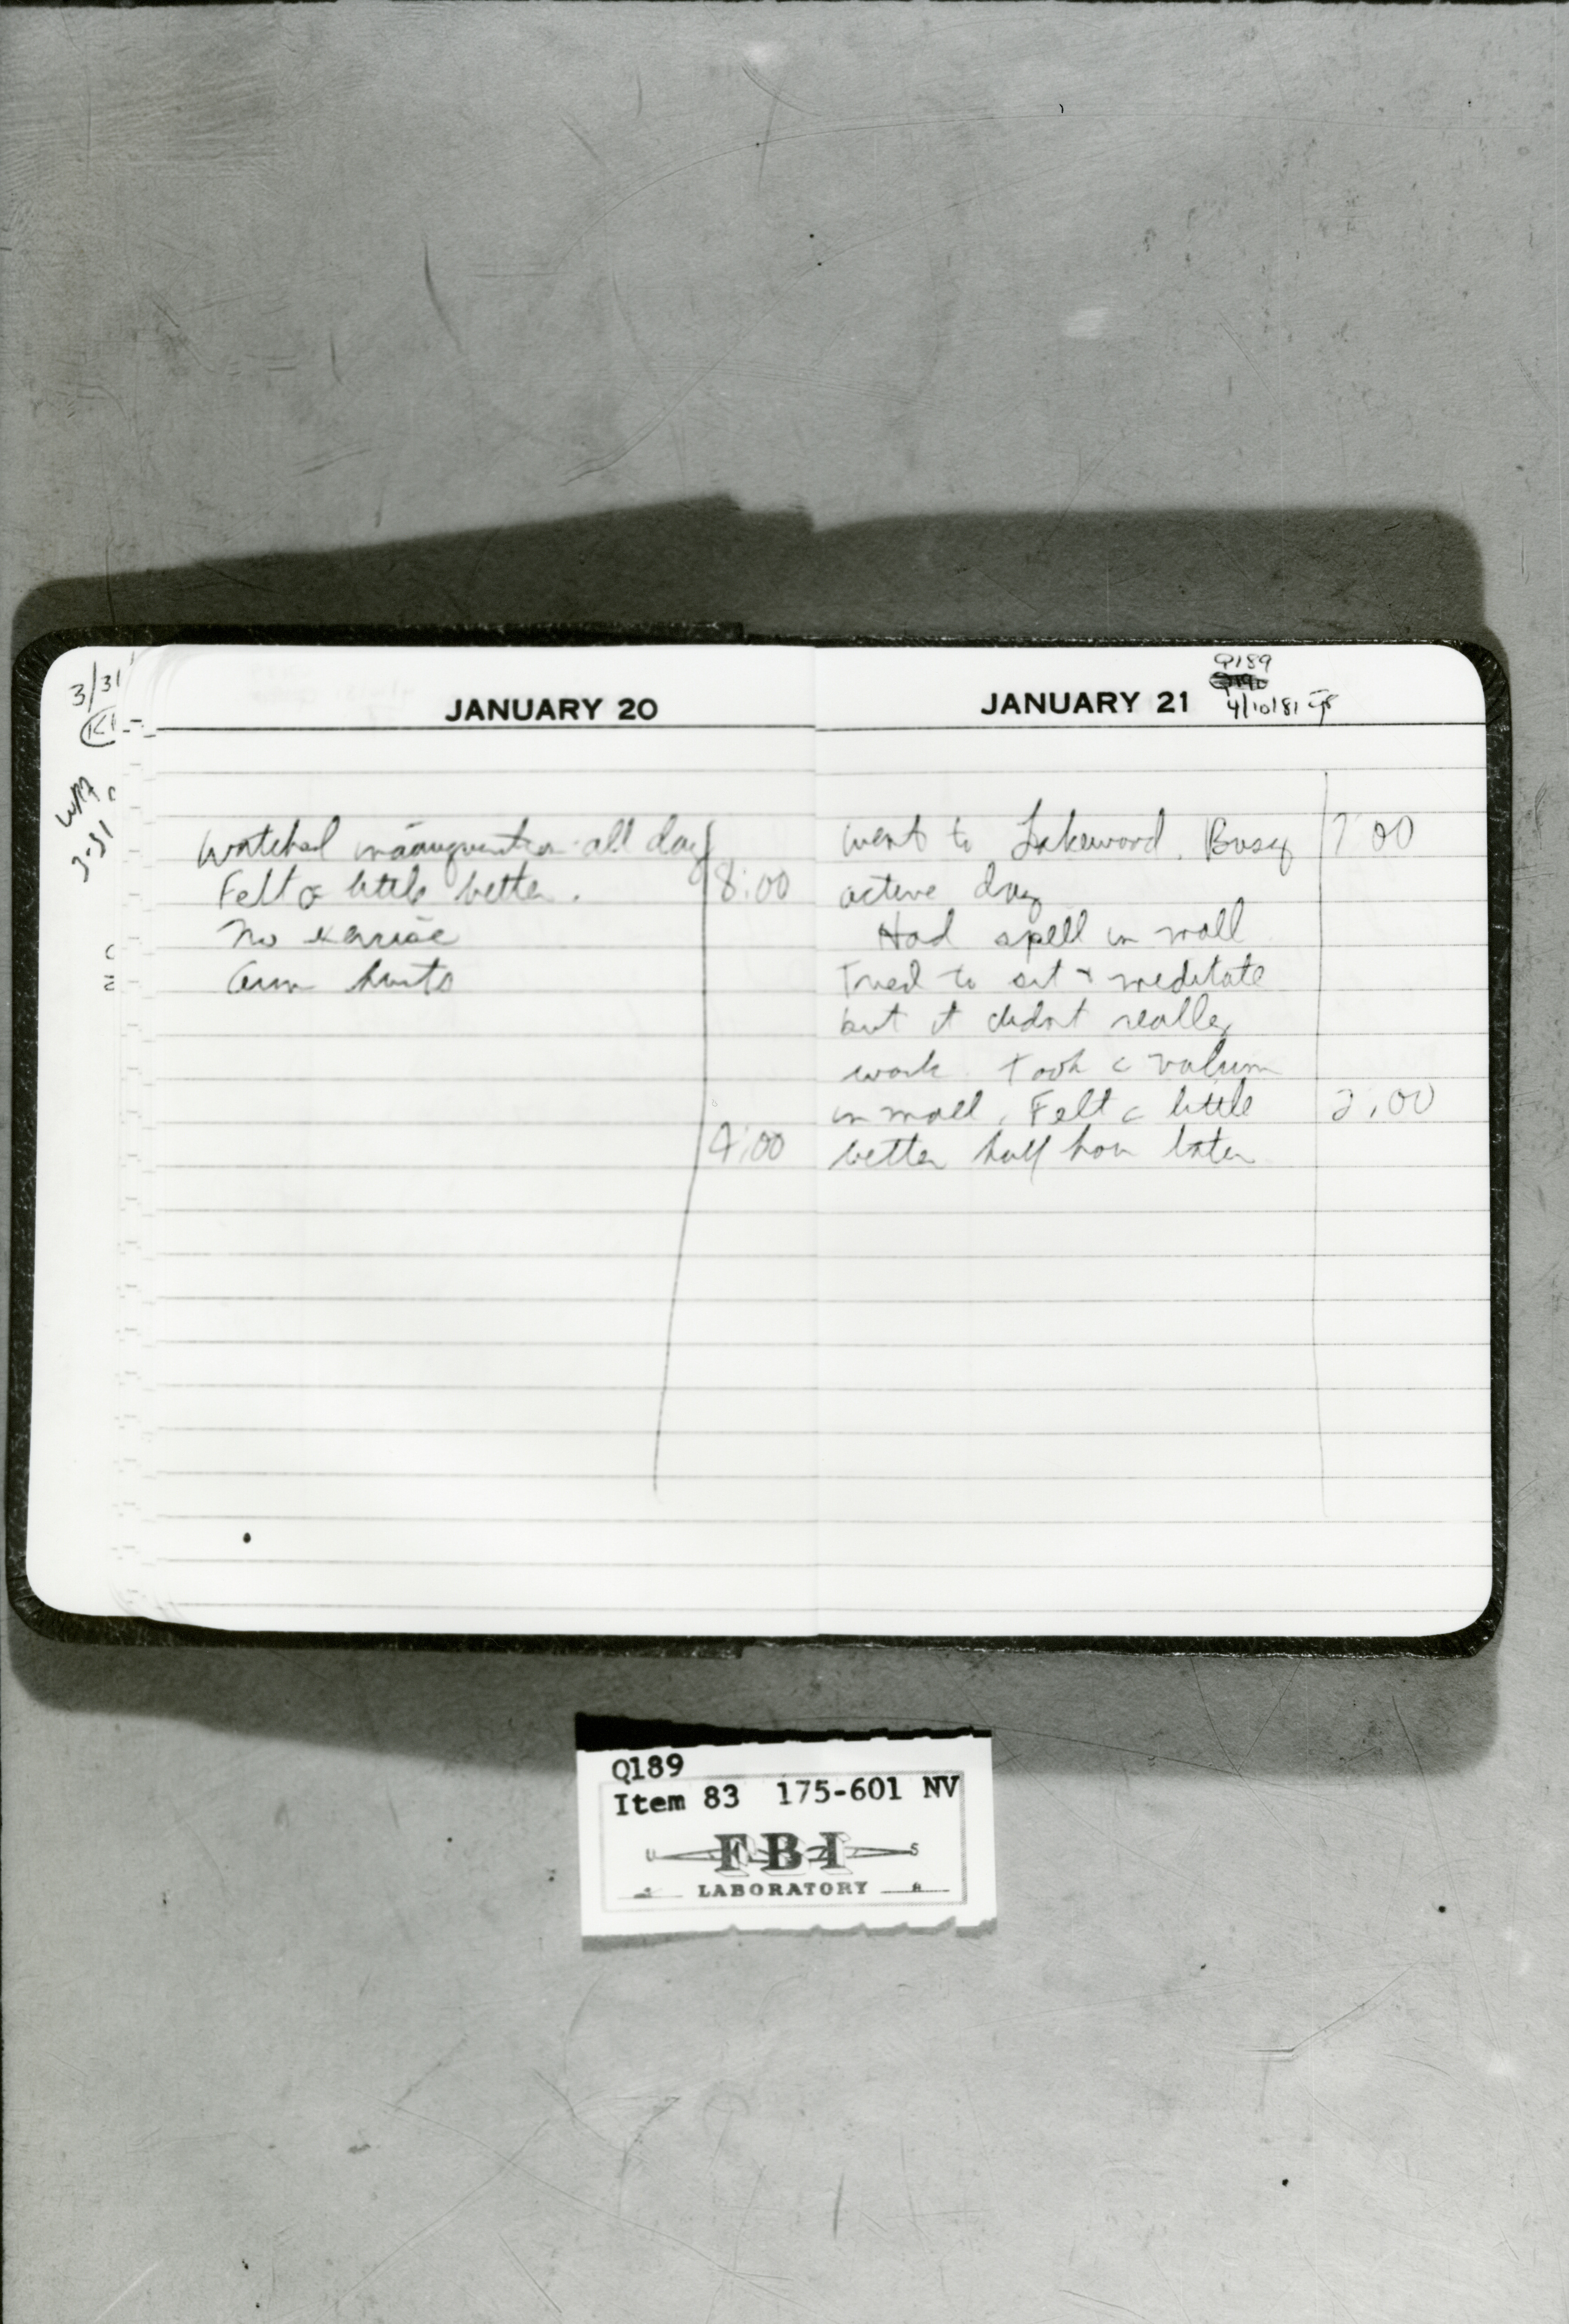 3/31
K1
3-31
JANUARY 20
Watched inauguration all day
Felt a little better. 8:00
No exercise
Arm hurts
9:00
Q189
JANUARY 21
4/10/81
Went to Lakewood. Busy 7:00
active day
Had spell in mall
Tried to sit + meditate
but it didnt really
work. Took a valium
in mall. Felt a little 2:00
better half hour later
Q189
Item 83 175-601 NV
U S
FBI
LABORATORY